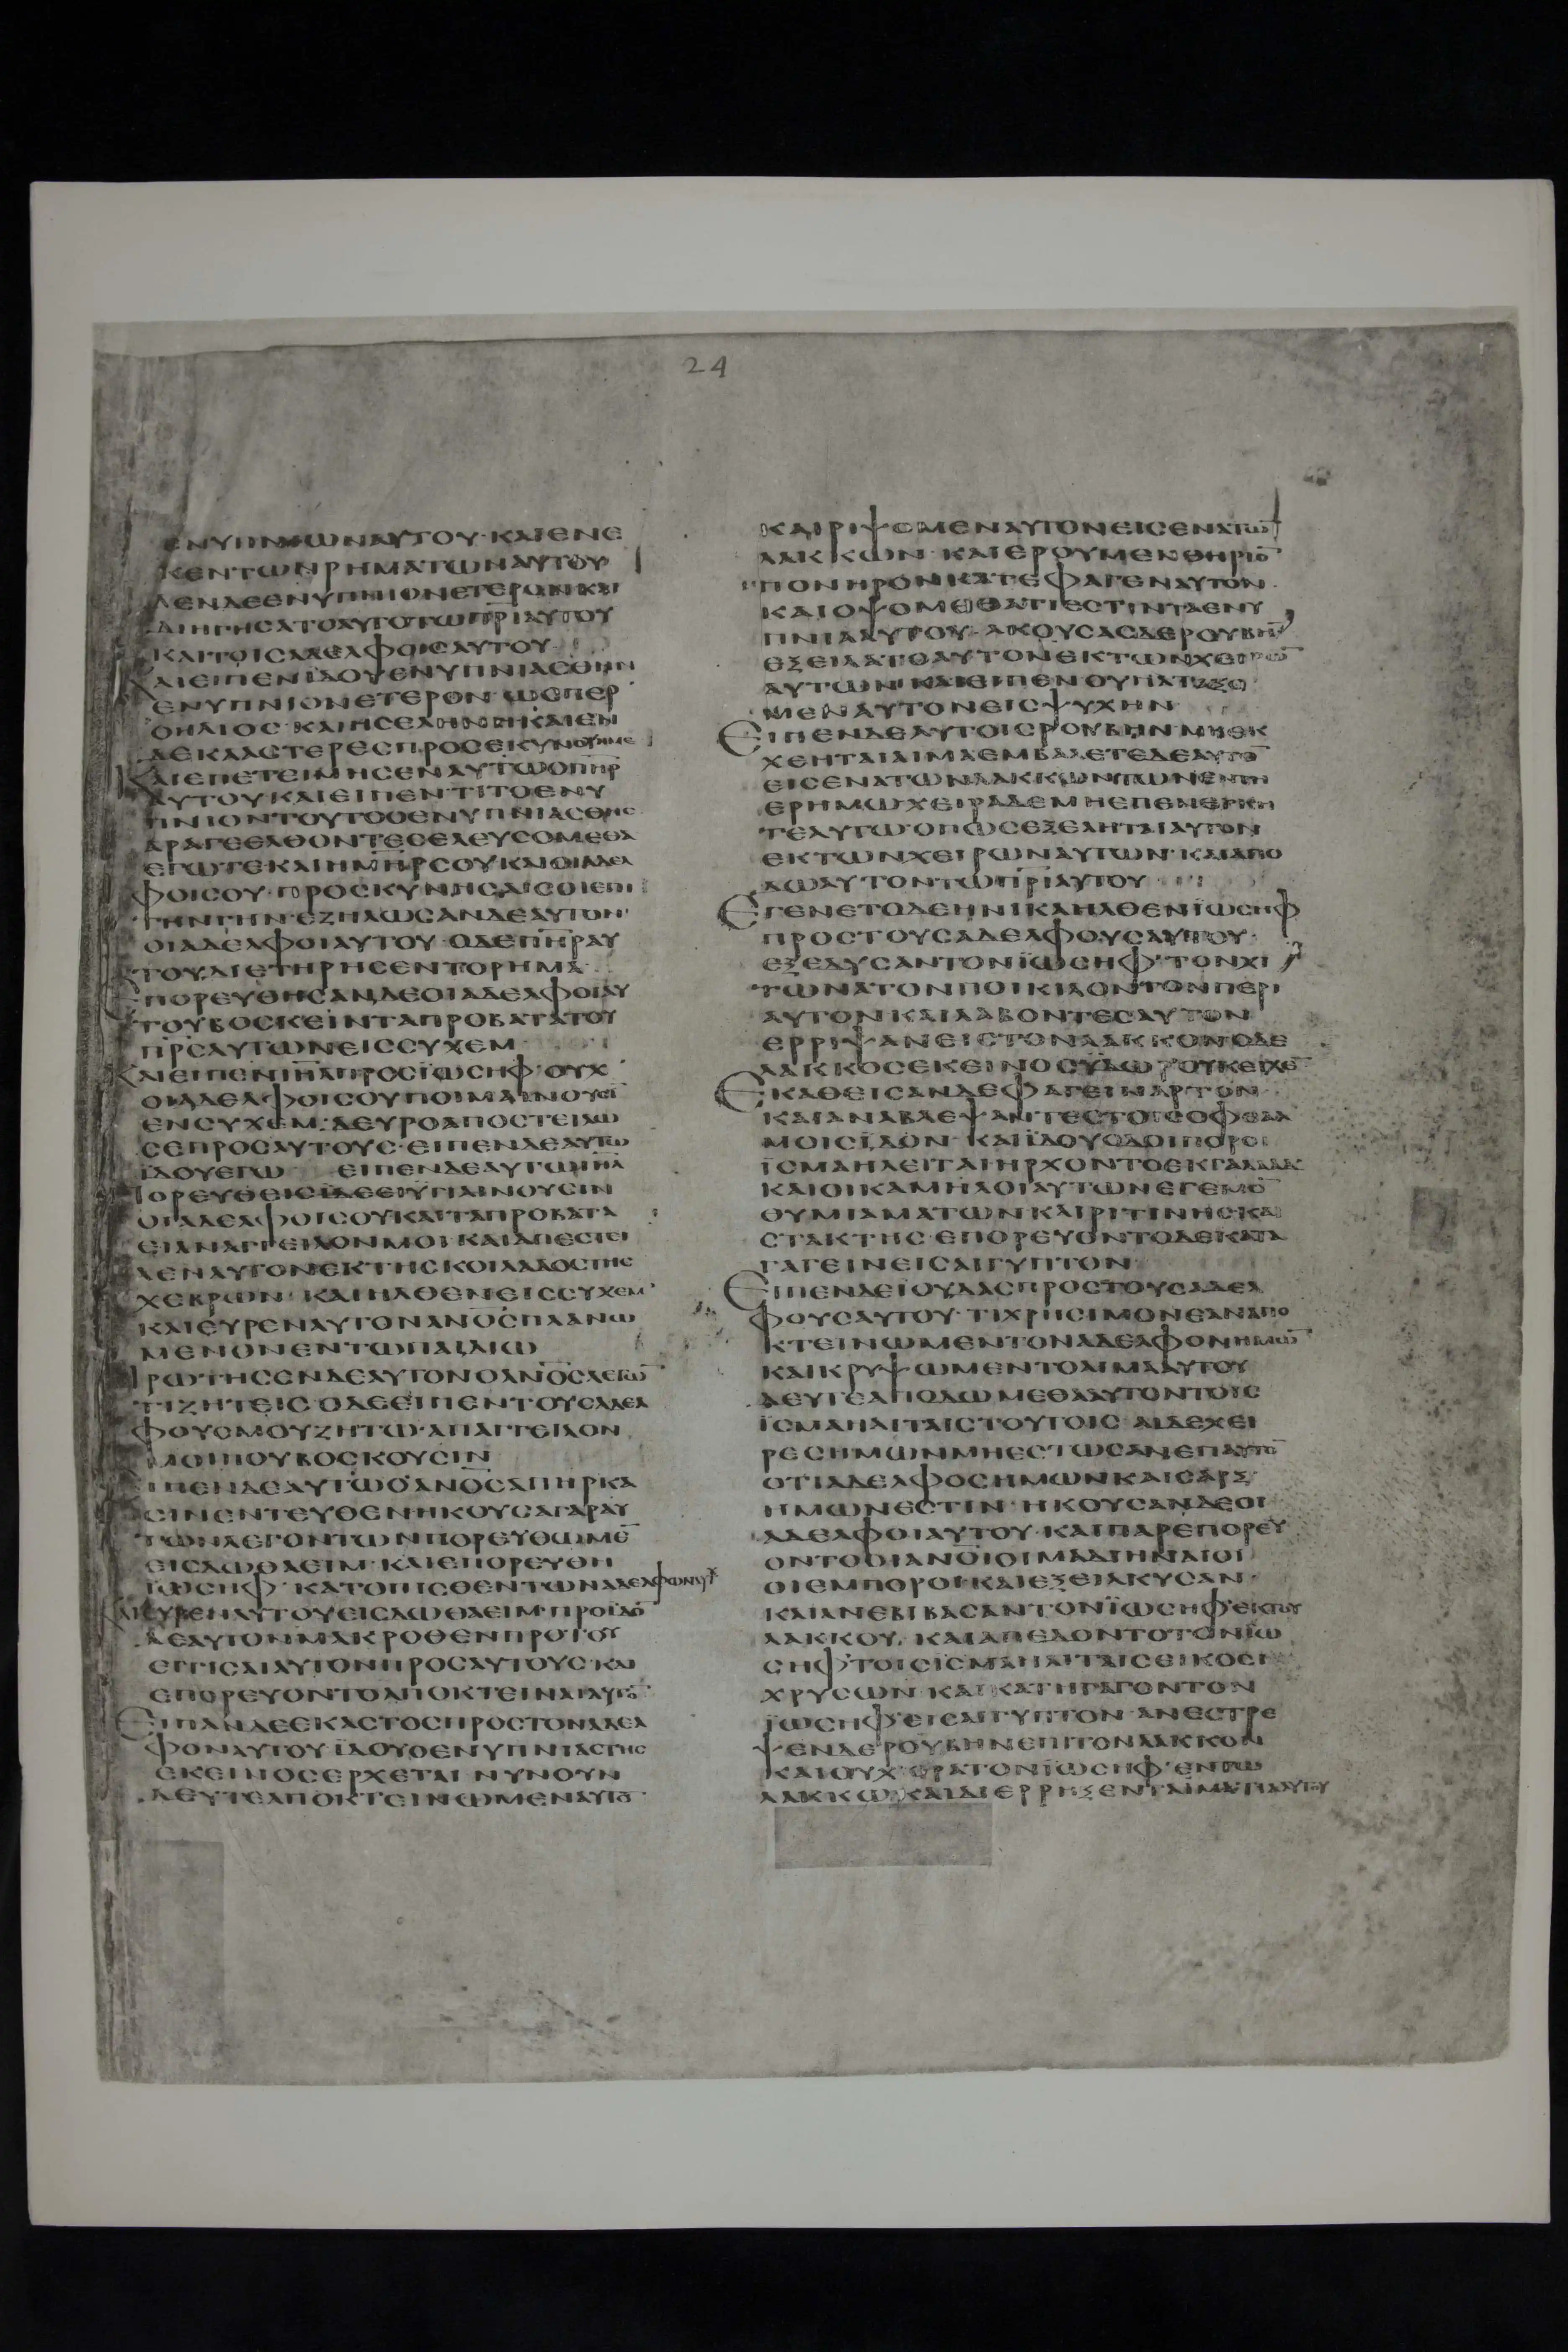 24
ΕΝΥΠΝΙΩΝΑΥΤΟΥ· ΚΑΙΕΝΕ
ΚΕΝΤΩΝΡΗΜΑΤΩΝΑΥΤΟΥ
ΔΕΝΔΕΕΝΥΠΝΙΟΝΕΤΕΡΟΝΚΑΙ
ΔΙΗΓΗΣΑΤΟΑΥΤΟΤΩΠΡ̅Ι̅ΑΥΤΟΥ
ΚΑΙΤΟΙΣΑΔΕΛΦΟΙΣΑΥΤΟΥ
ΚΑΙΕΙΠΕΝΪΔΟΥΕΝΥΠΝΙΑΣΘΗΝ
ΕΝΥΠΝΙΟΝΕΤΕΡΟΝ· ΩΣΠΕΡ
ΟΗΛΙΟΣ· ΚΑΙΗΣΕΛΗΝΗΚΑΙΕΝ
ΔΕΚΑΑΣΤΕΡΕΣΠΡΟΣΕΚΥΝΟΥΝΜΕ
ΚΑΙΕΠΕΤΕΙΜΗΣΕΝΑΥΤΩΟΠ̅Η̅Ρ̅
ΑΥΤΟΥΚΑΙΕΙΠΕΝ· ΤΙΤΟΕΝΥ
ΠΝΙΟΝΤΟΥΤΟΟΕΝΥΠΝΙΑΣΘΗΣ
ΑΡΑΓΕΕΛΘΟΝΤΕΣΕΛΕΥΣΟΜΕΘΑ
ΕΓΩΤΕ· ΚΑΙΗΜ̅Η̅Ρ̅ΣΟΥΚΑΙΟΙΑΔΕΛ
ΦΟΙΣΟΥ· ΠΡΟΣΚΥΝΗΣΑΙΣΟΙΕΠΙ
ΤΗΝΓΗΝ· ΕΖΗΛΩΣΑΝΔΕΑΥΤΟΝ·
ΟΙΑΔΕΛΦΟΙΑΥΤΟΥ· ΟΔΕΠ̅Η̅Ρ̅ΑΥ
ΤΟΥΔΙΕΤΗΡΗΣΕΝΤΟΡΗΜΑ·
ΕΠΟΡΕΥΘΗΣΑΝΔΕΟΙΑΔΕΛΦΟΙΑΥ
ΤΟΥΒΟΣΚΕΙΝΤΑΠΡΟΒΑΤΑΤΟΥ
Π̅Ρ̅Σ̅ΑΥΤΩΝΕΙΣΣΥΧΕΜ
ΚΑΙΕΙΠΕΝΙ̅Η̅Λ̅ΠΡΟΣΪΩΣΗΦ· ΟΥΧ
ΟΙΑΔΕΛΦΟΙΣΟΥΠΟΙΜΑΙΝΟΥΣΙ̅
ΕΝΣΥΧΕΜ· ΔΕΥΡΟΑΠΟΣΤΕΙΛΩ
ΣΕΠΡΟΣΑΥΤΟΥΣ· ΕΙΠΕΝΔΕΑΥΤΩ
ΪΔΟΥΕΓΩ ΕΙΠΕΝΔΕΑΥΤΩΙ̅Η̅Λ̅
ΠΟΡΕΥΘΕΙΣΪΔΕΕΙΥΓΙΑΙΝΟΥΣΙΝ
ΟΙΑΔΕΛΦΟΙΣΟΥΚΑΙΤΑΠΡΟΒΑΤΑ
ΚΑΙΑΝΑΓΓΕΙΛΟΝΜΟΙ· ΚΑΙΑΠΕΣΤΕΙ
ΛΕΝΑΥΤΟΝΕΚΤΗΣΚΟΙΛΑΔΟΣΤΗΣ
ΧΕΒΡΩΝ· ΚΑΙΗΛΘΕΝΕΙΣΣΥΧΕΜ·
ΚΑΙΕΥΡΕΝΑΥΤΟΝΑΝ̅Ο̅Σ̅ΠΛΑΝΩ
ΜΕΝΟΝΕΝΤΩΠΑΙΔΙΩ
ΗΡΩΤΗΣΕΝΔΕΑΥΤΟΝΟΑΝ̅Ο̅Σ̅ΛΕΓΩ̅
ΤΙΖΗΤΕΙΣ· ΟΔΕΕΙΠΕΝ· ΤΟΥΣΑΔΕΛ
ΦΟΥΣΜΟΥΖΗΤΩ· ΑΠΑΓΓΕΙΛΟΝ
ΜΟΙΠΟΥΒΟΣΚΟΥΣΙΝ
ΕΙΠΕΝΔΕΑΥΤΩΟΑΝ̅Ο̅Σ̅ΑΠΗΡΚΑ
ΣΙΝΕΝΤΕΥΘΕΝΗΚΟΥΣΑΓΑΡΑΥ
ΤΩΝΛΕΓΟΝΤΩΝΠΟΡΕΥΘΩΜΕ̅
ΕΙΣΔΩΘΑΕΙΜ· ΚΑΙΕΠΟΡΕΥΘΗ
ΪΩΣΗΦ· ΚΑΤΟΠΙΣΘΕΝΤΩΝΑΔΕΛΦΩΝΑΥΤ
ΚΑΙΕΥΡΕΝΑΥΤΟΥΕΙΣΔΩΘΑΕΙΜ· ΠΡΟΪΔΟ̅
ΔΕΑΥΤΟΝΜΑΚΡΟΘΕΝΠΡΟΤΟΥ
ΕΓΓΙΣΑΙΑΥΤΟΝΠΡΟΣΑΥΤΟΥΣ· ΚΑΙ
ΕΠΟΡΕΥΟΝΤΟΑΠΟΚΤΕΙΝΑΙΑΥΤΟ̅
ΕΙΠΑΝΔΕΕΚΑΣΤΟΣΠΡΟΣΤΟΝΑΔΕΛ
ΦΟΝΑΥΤΟΥ· ΪΔΟΥΟΕΝΥΠΝΙΑΣΤΗΣ
ΕΚΕΙΝΟΣΕΡΧΕΤΑΙ ΝΥΝΟΥΝ
ΔΕΥΤΕΑΠΟΚΤΕΙΝΩΜΕΝΑΥΤΟ̅
ΚΑΙΡΙΨΟΜΕΝΑΥΤΟΝΕΙΣΕΝΑΤΩ̅
ΛΑΚΚΩΝ· ΚΑΙΕΡΟΥΜΕΝΘΗΡΙΟ̅
ΠΟΝΗΡΟΝΚΑΤΕΦΑΓΕΝΑΥΤΟΝ·
ΚΑΙΟΨΟΜΕΘΑΤΙΕΣΤΙΝΤΑΕΝΥ
ΠΝΙΑΑΥΤΟΥ· ΑΚΟΥΣΑΣΔΕΡΟΥΒΗ̅
ΕΞΕΙΛΑΤΟΑΥΤΟΝΕΚΤΩΝΧΕΙΡΩ̅
ΑΥΤΩΝ· ΚΑΙΕΙΠΕΝΟΥΠΑΤΑΞΟ
ΜΕΝΑΥΤΟΝΕΙΣΨΥΧΗΝ
ΕΙΠΕΝΔΕΑΥΤΟΙΣΡΟΥΒΗΝ· ΜΗΕΚ
ΧΕΗΤΑΙΑΙΜΑΕΜΒΑΛΕΤΕΔΕΑΥΤΟ̅
ΕΙΣΕΝΑΤΩΝΛΑΚΚΩΝΤΩΝΕΝΤΗ
ΕΡΗΜΩ· ΧΕΙΡΑΔΕΜΗΕΠΕΝΕΓΚΗ
ΤΕΑΥΤΩ· ΟΠΩΣΕΞΕΛΗΤΑΙΑΥΤΟΝ
ΕΚΤΩΝΧΕΙΡΩΝΑΥΤΩΝ· ΚΑΙΑΠΟ
ΔΩΑΥΤΟΝΤΩΠ̅Ρ̅Ι̅ΑΥΤΟΥ
ΕΓΕΝΕΤΟΔΕΗΝΙΚΑΗΛΘΕΝΪΩΣΗΦ
ΠΡΟΣΤΟΥΣΑΔΕΛΦΟΥΣΑΥΤΟΥ·
ΕΞΕΔΥΣΑΝΤΟΝΪΩΣΗΦ· ΤΟΝΧΙ
ΤΩΝΑΤΟΝΠΟΙΚΙΛΟΝΤΟΝΠΕΡΙ
ΑΥΤΟΝΚΑΙΛΑΒΟΝΤΕΣΑΥΤΟΝ
ΕΡΡΙΨΑΝΕΙΣΤΟΝΛΑΚΚΟΝΟΔΕ
ΛΑΚΚΟΣΕΚΕΙΝΟΣΫΔΩΡΟΥΚΕΙΧΕ̅
ΕΚΑΘΕΙΣΑΝΔΕΦΑΓΕΙΝΑΡΤΟΝ
ΚΑΙΑΝΑΒΛΕΨΑΝΤΕΣΤΟΙΣΟΦΘΑΛ
ΜΟΙΣΪΔΟΝ· ΚΑΙΪΔΟΥΟΔΟΙΠΟΡΟΙ
ΪΣΜΑΗΛΕΙΤΑΙΗΡΧΟΝΤΟΕΚΓΑΛΑΑΔ
ΚΑΙΟΙΚΑΜΗΛΟΙΑΥΤΩΝΕΓΕΜΟ̅
ΘΥΜΙΑΜΑΤΩΝΚΑΙΡΙΤΙΝΗΣΚΑΙ
ΣΤΑΚΤΗΣ· ΕΠΟΡΕΥΟΝΤΟΔΕΚΑΤΑ
ΓΑΓΕΙΝΕΙΣΑΙΓΥΠΤΟΝ
ΕΙΠΕΝΔΕΪΟΥΔΑΣΠΡΟΣΤΟΥΣΑΔΕΛ
ΦΟΥΣΑΥΤΟΥ· ΤΙΧΡΗΣΙΜΟΝΕΑΝΑΠΟ
ΚΤΕΙΝΩΜΕΝΤΟΝΑΔΕΛΦΟΝΗΜΩ̅
ΚΑΙΚΡΥΨΩΜΕΝΤΟΑΙΜΑΑΥΤΟΥ
ΔΕΥΤΕΑΠΟΔΩΜΕΘΑΑΥΤΟΝΤΟΙΣ
ΪΣΜΑΗΛΙΤΑΙΣΤΟΥΤΟΙΣ· ΑΙΔΕΧΕΙ
ΡΕΣΗΜΩΝΜΗΕΣΤΩΣΑΝΕΠΑΥΤΟ̅
ΟΤΙΑΔΕΛΦΟΣΗΜΩΝΚΑΙΣΑΡΞ
ΗΜΩΝΕΣΤΙΝ· ΗΚΟΥΣΑΝΔΕΟΙ
ΑΔΕΛΦΟΙΑΥΤΟΥ· ΚΑΙΠΑΡΕΠΟΡΕΥ
ΟΝΤΟΟΙΑΝ̅Ο̅Ι̅ΟΙΜΑΔΙΗΝΑΙΟΙ
ΟΙΕΜΠΟΡΟΙ· ΚΑΙΕΞΕΙΛΚΥΣΑΝ·
ΚΑΙΑΝΕΒΙΒΑΣΑΝΤΟΝΪΩΣΗΦ· ΕΚΤΟΥ
ΛΑΚΚΟΥ· ΚΑΙΑΠΕΔΟΝΤΟΤΟΝΪΩ
ΣΗΦ· ΤΟΙΣΪΣΜΑΗΛΙΤΑΙΣΕΙΚΟΣΙ
ΧΡΥΣΩΝ· ΚΑΙΚΑΤΗΓΑΓΟΝΤΟΝ
ΪΩΣΗΦ· ΕΙΣΑΙΓΥΠΤΟΝ· ΑΝΕΣΤΡΕ
ΨΕΝΔΕΡΟΥΒΗΝΕΠΙΤΟΝΛΑΚΚΟΝ
ΚΑΙΟΥΧΟΡΑΤΟΝΪΩΣΗΦ· ΕΝΤΩ
ΛΑΚΚΩ· ΚΑΙΔΙΕΡΡΗΞΕΝΤΑΙΜΑΤΙΑΑΥΤΟΥ